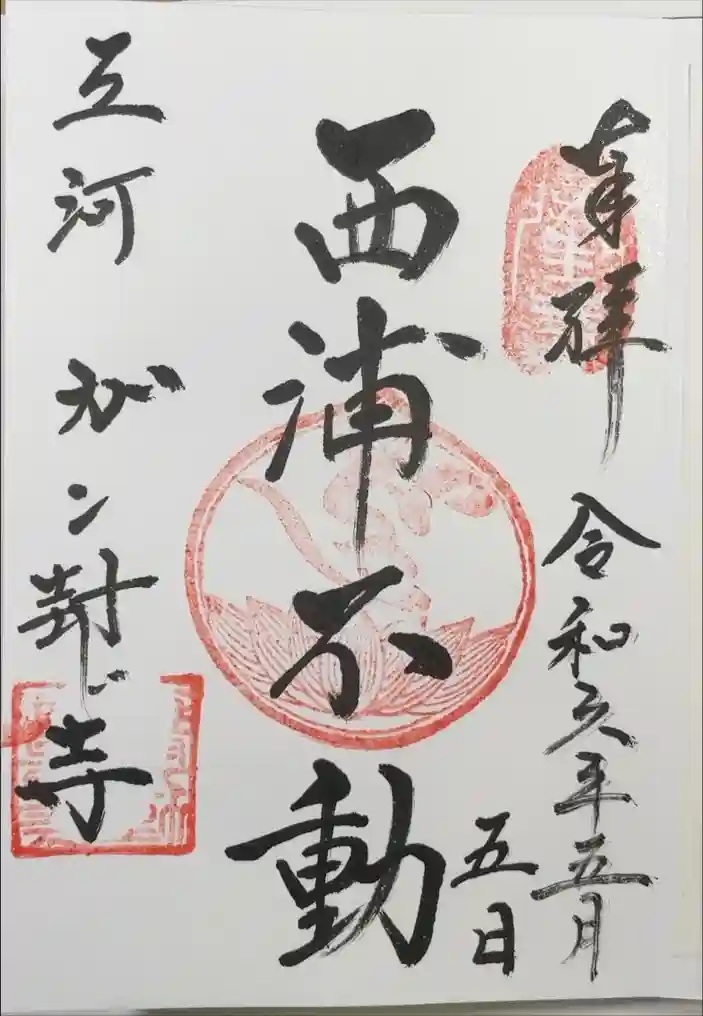 奉拝
令和六年五月
五日
西浦不動
三河 ガン封じ寺